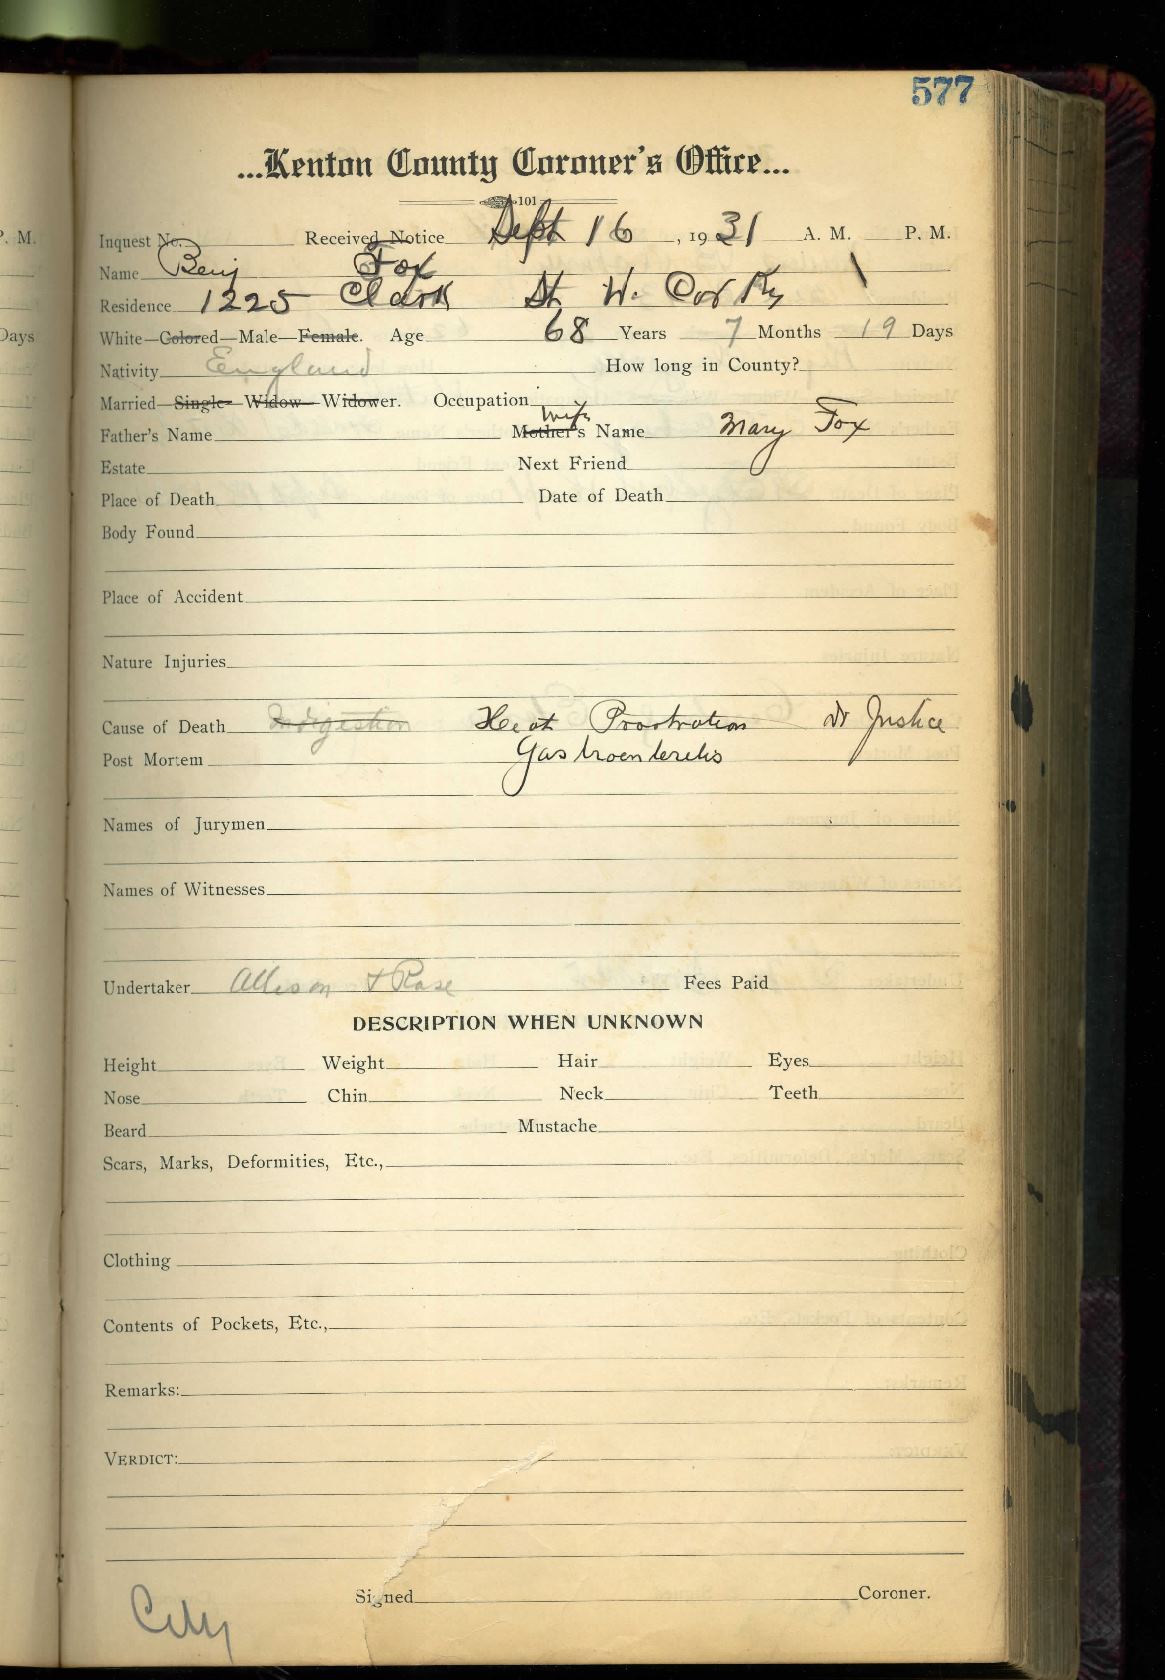 577
...Kenton County Coroner's Office...
101
Inquest No. Received Notice Sept 16, 1931 A. M. P. M.
Name Benj Fox
Residence 1225 Clark St W. Cov Ky
White—Colored—Male—Female. Age 68 Years 7 Months 19 Days
Nativity England How long in County?
Married—Single—Widow—Widower. Occupation
wife
Father's Name Mother's Name Mary Fox
Estate Next Friend
Place of Death Date of Death
Body Found
Place of Accident
Nature Injuries
Cause of Death Indigestion Heat Prostration Dr Justice
Post Mortem Gastroenteritis
Names of Jurymen
Names of Witnesses
Undertaker Allison & Rose Fees Paid
DESCRIPTION WHEN UNKNOWN
Height Weight Hair Eyes
Nose Chin Neck Teeth
Beard Mustache
Scars, Marks, Deformities, Etc.,
Clothing
Contents of Pockets, Etc.,
Remarks:
VERDICT:
Signed Coroner.
City
P. M.
Days